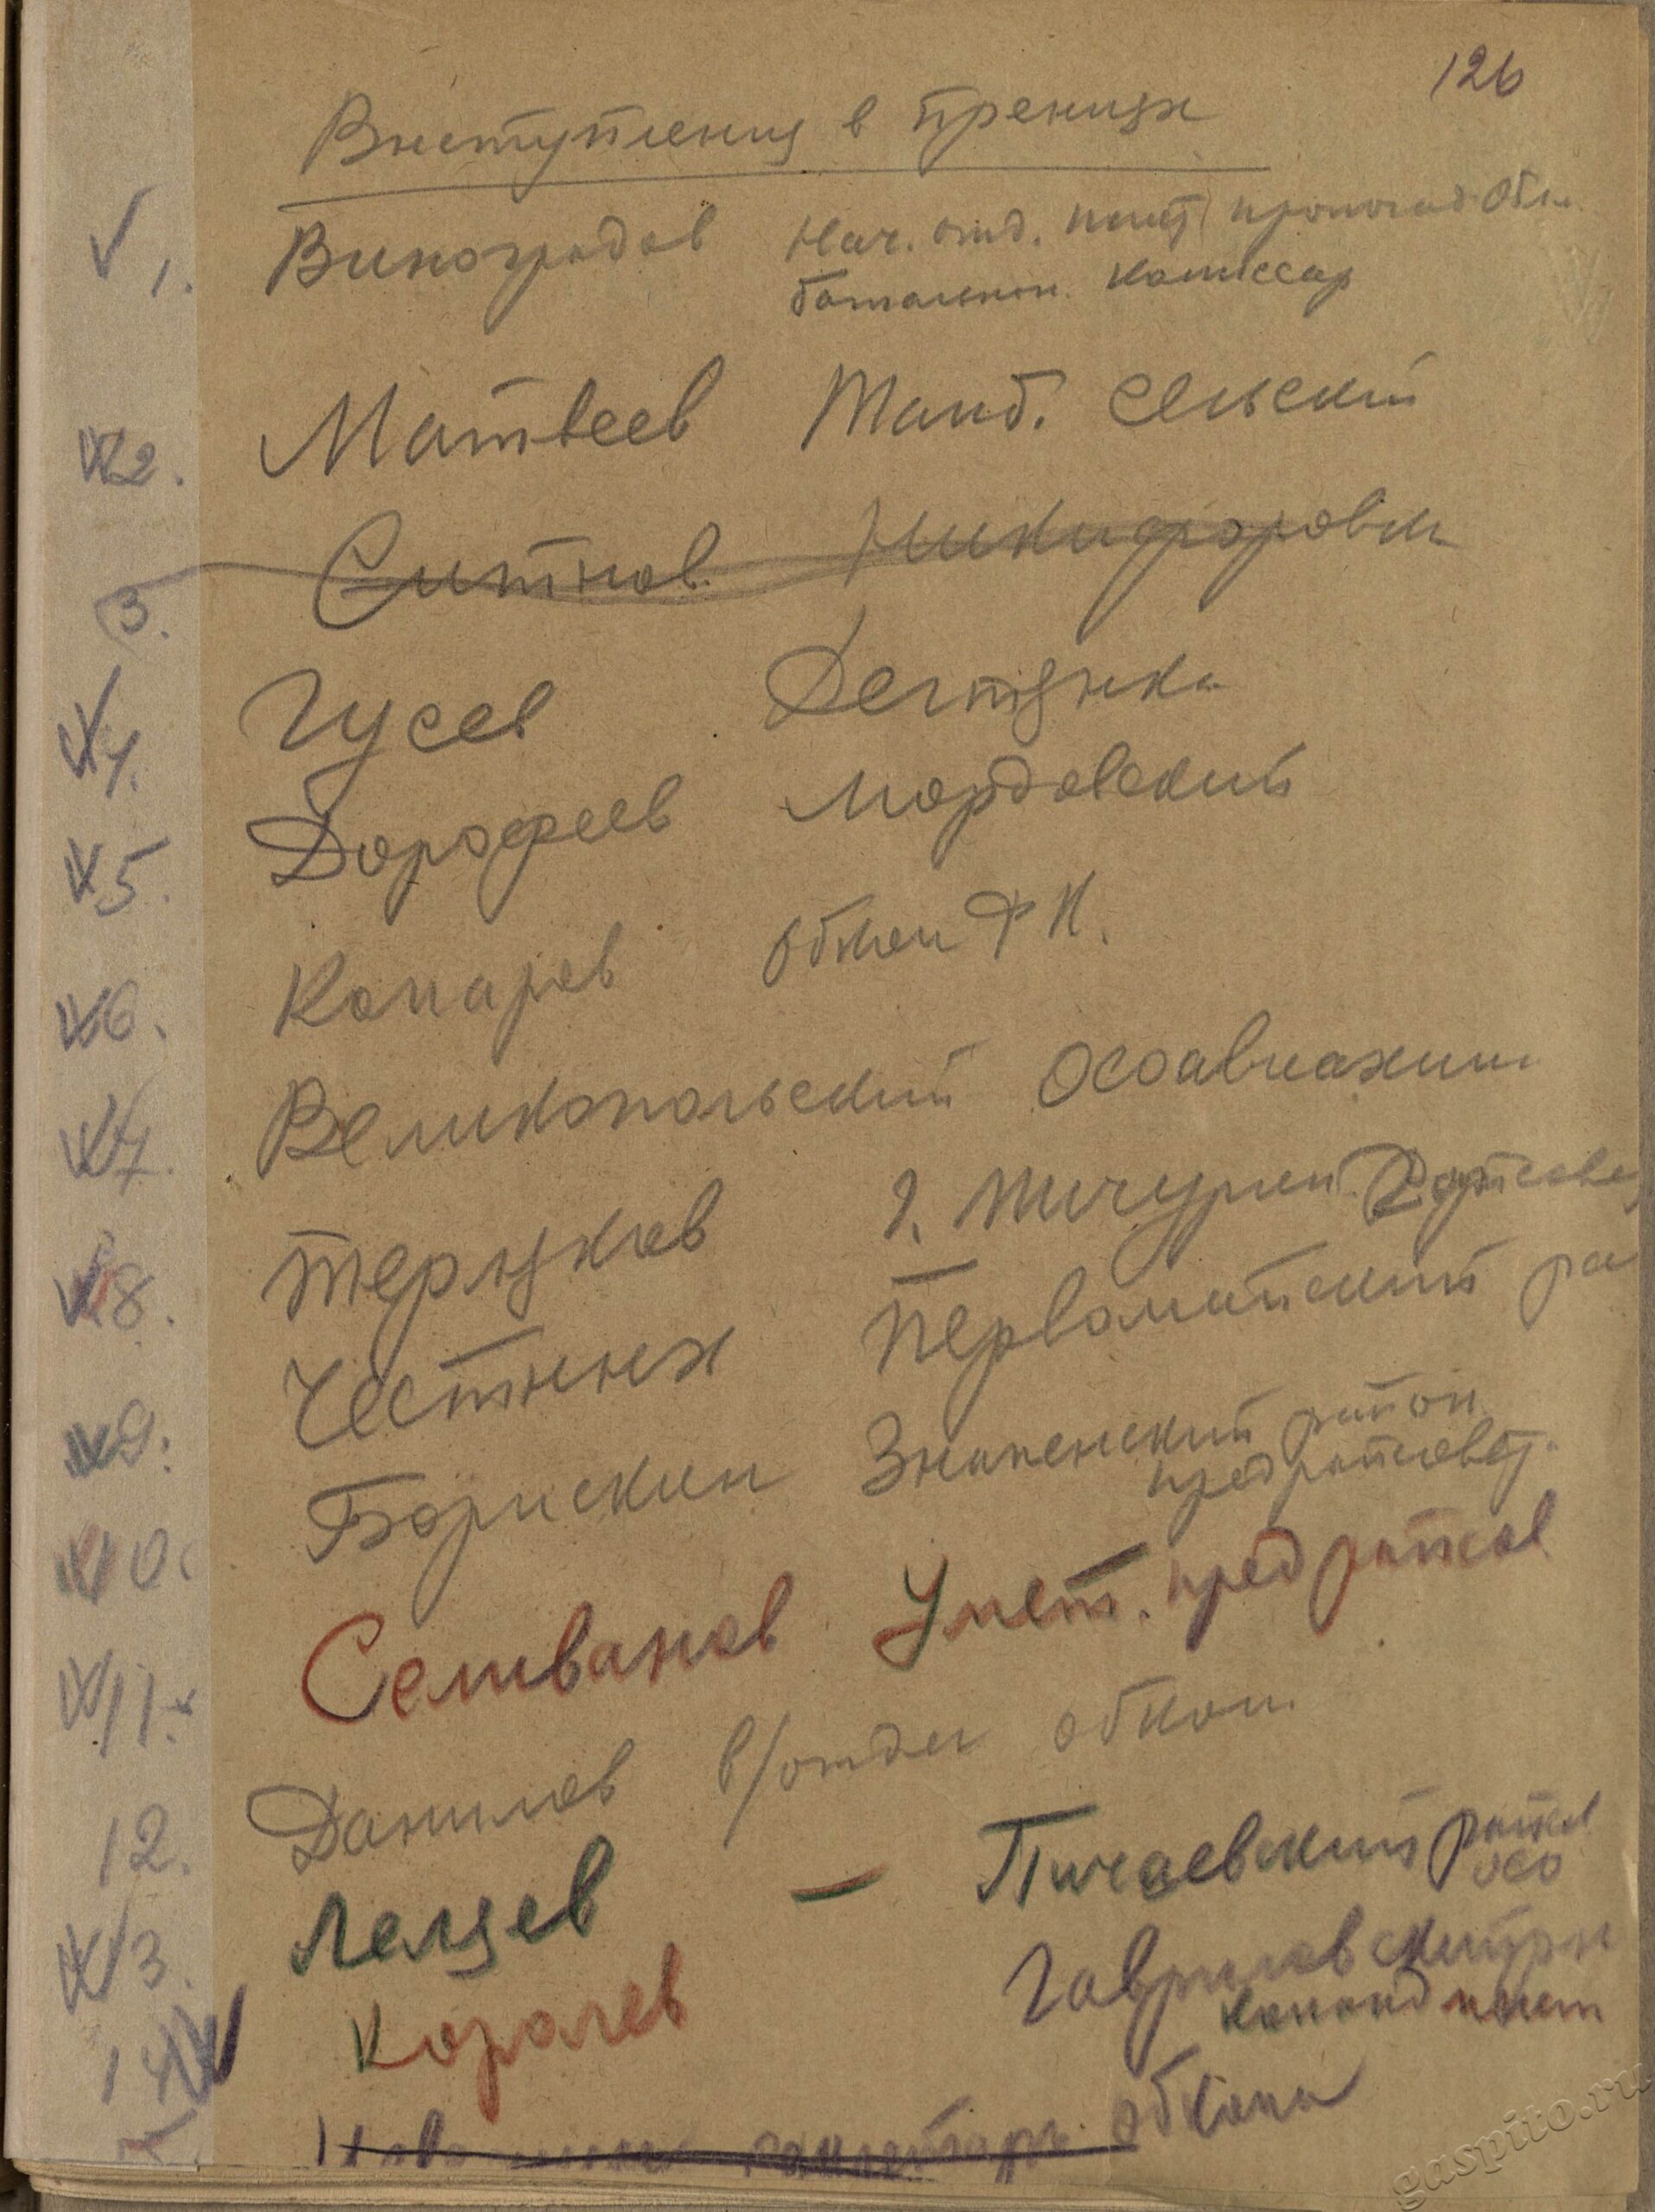 126
Выступления в прениях
1. Виноградов Нач. отд. полит пропоганд Обл.
баталион. комиссар
2. Матвеев Тамб. сельский
3. Ситнов Никифоровск
4. Гусев Дегтянка
5. Дорофеев Мордовский
6. Комаров обком РК.
7. Великопольский Осоавиахим
8. Теряков г. Мичурин. Горсовет
9. Честных Первомайский ра
10. Борискин Знаменский район
предрайсовет.
11. Селиванов Умет. предрайсов
12. Данилов в/отдел обком
13. Пичаевский райсов
осо
14. Королев Гавриловский рн
команд
секретарь обкома
gaspito.ru